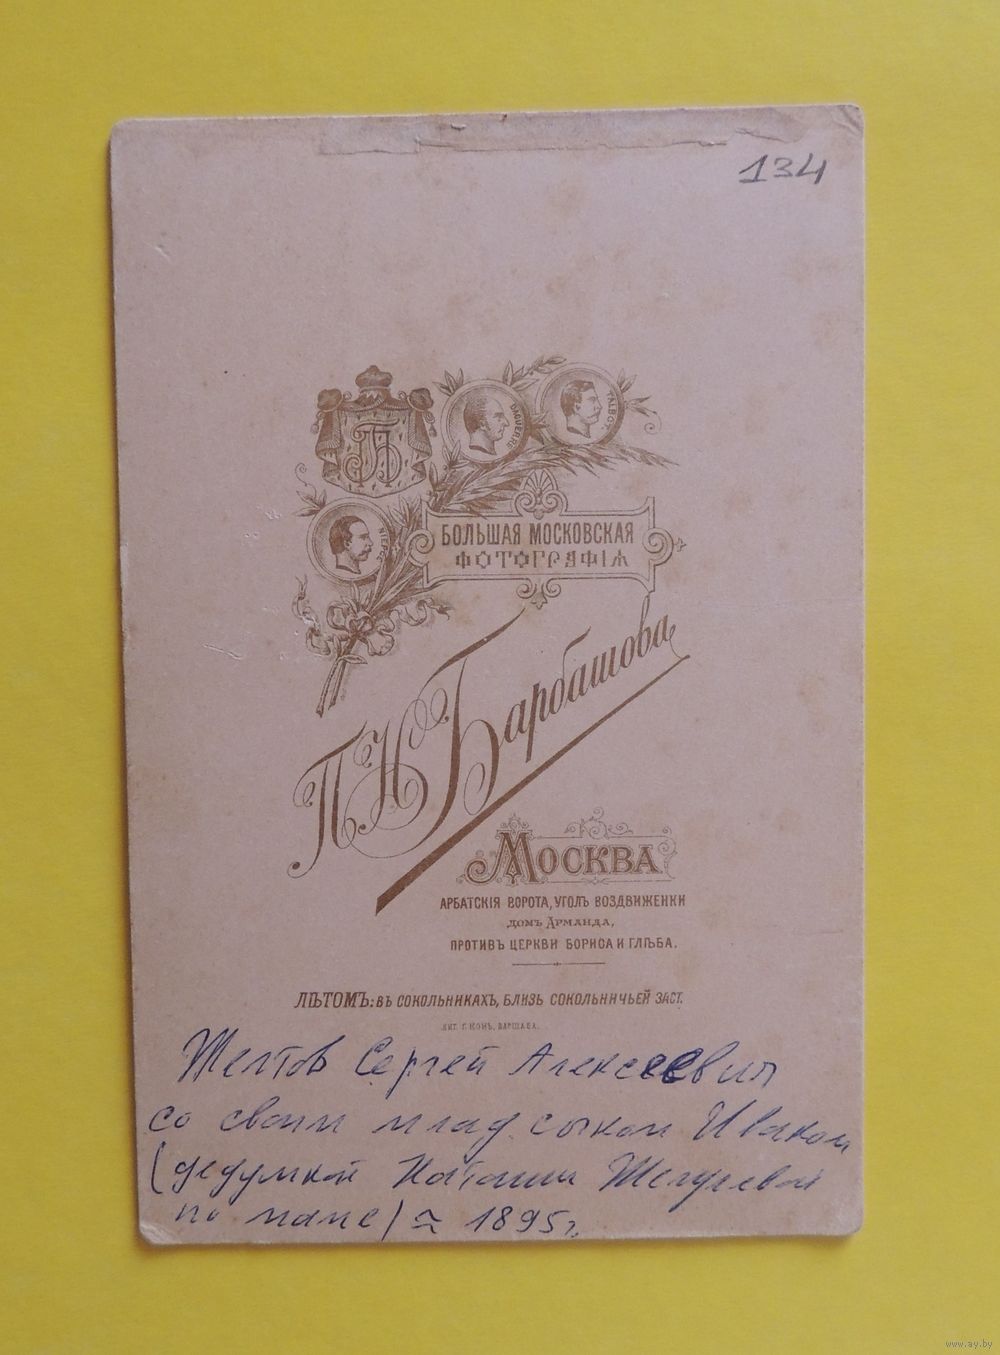 134
ПБ
DAGUERRE
TALBOT
NIEPCE
БОЛЬШАЯ МОСКОВСКАЯ
ФОТОГРАФІЯ
П Н Барбашова
МОСКВА
АРБАТСКІЯ ВОРОТА, УГОЛЪ ВОЗДВИЖЕНКИ
ДОМЪ АРМАНДА,
ПРОТИВЪ ЦЕРКВИ БОРИСА И ГЛѢБА.
ЛѢТОМЪ: ВЪ СОКОЛЬНИКАХЪ, БЛИЗЬ СОКОЛЬНИЧЬЕЙ ЗАСТ.
ЛИТ. Г. КОНЪ, ВАРШАВА.
Желтов Сергей Алексеевич
со своим млад. сыном Иваном
(дедушкой Наташи
по маме) ≈ 1895г.
www.ay.by